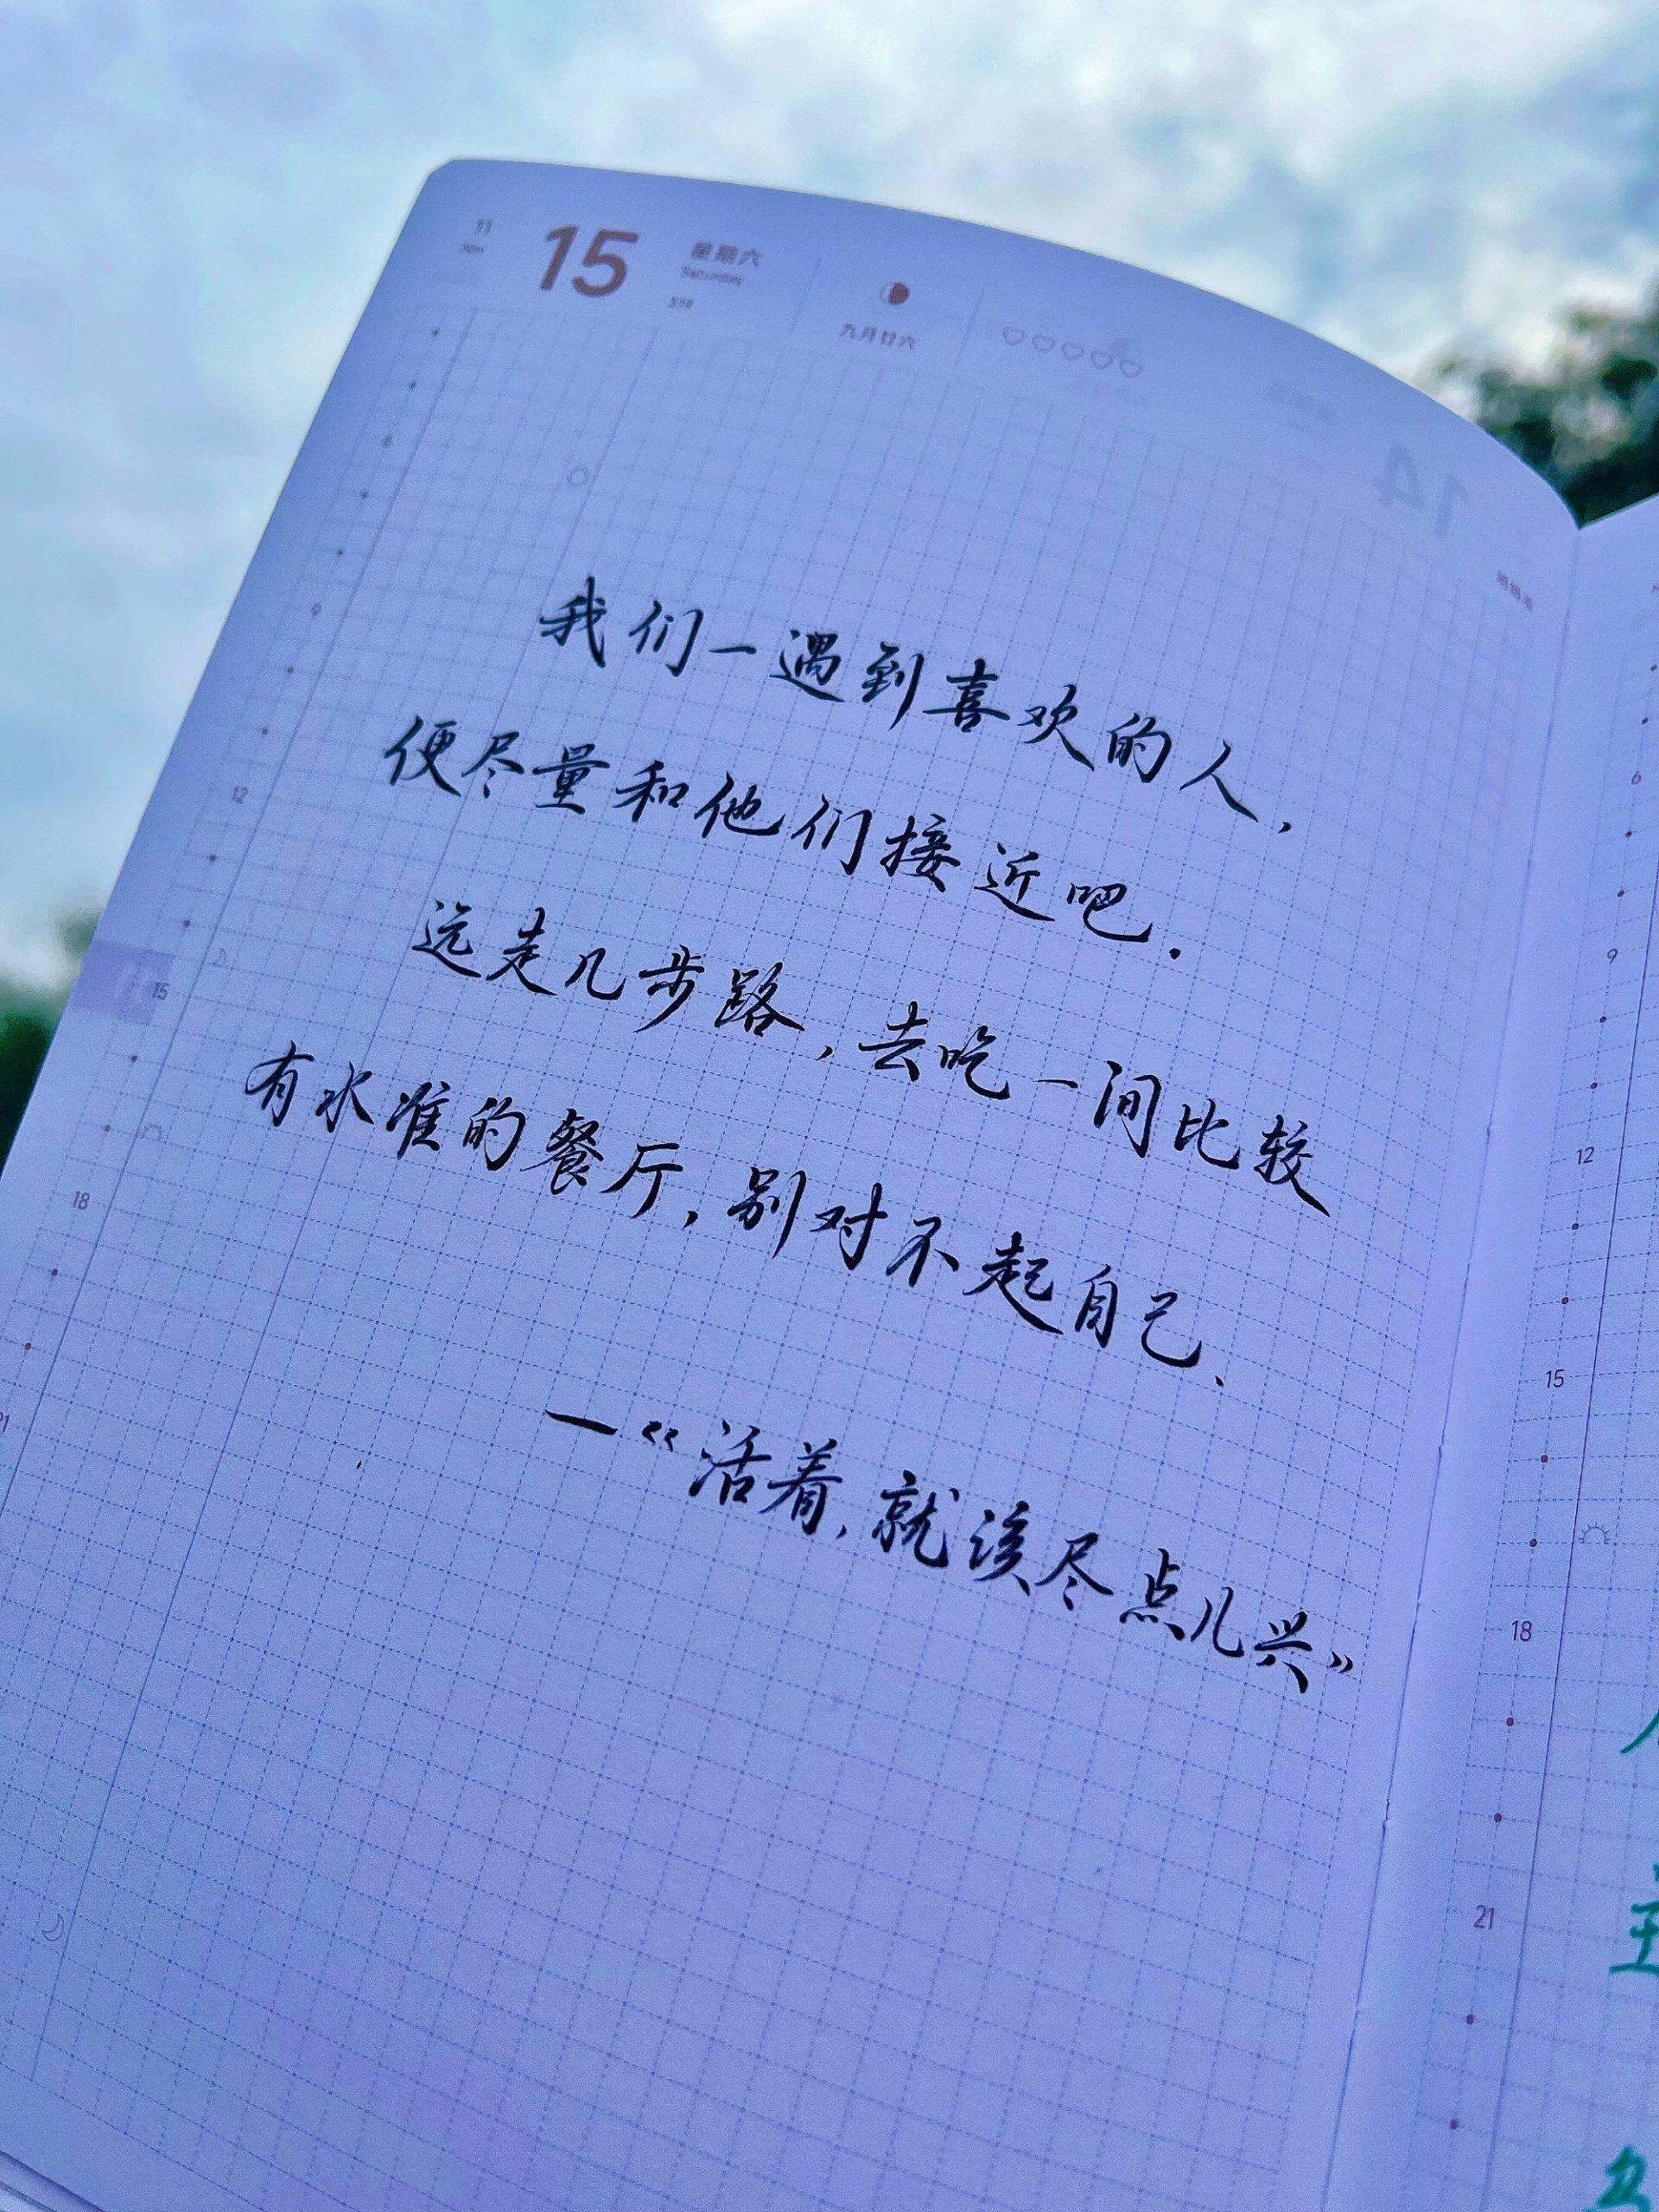 11
15
星期六
Saturday
九月廿六
14
我们一遇到喜欢的人，
便尽量和他们接近吧.
远走几步路，去吃一间比较
有水准的餐厅，别对不起自己、
—《活着，就该尽点儿兴》
9
12
15
18
21
6
9
12
15
18
21